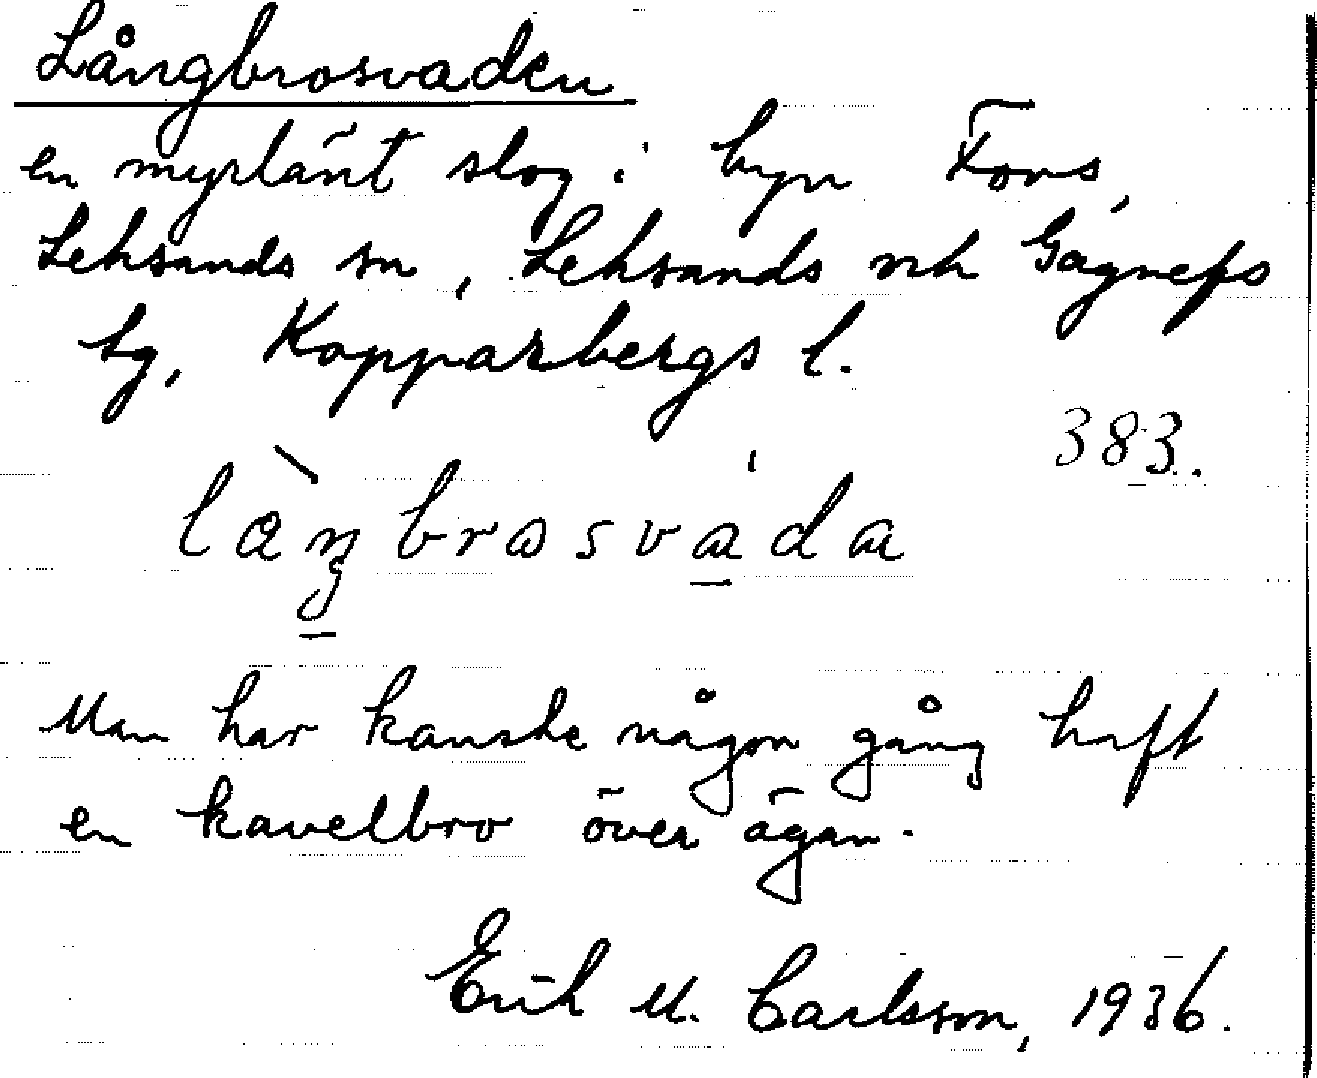 Långbrosvaden
en myrlänt slog i byn Fors,
Leksands sn, Leksands och Gagnefs
tg, Kopparbergs l.
383.
làŋbrosvada
Man har kanske någon gång haft
en kavelbro över ägan.
Erik M. Carlsson, 1936.